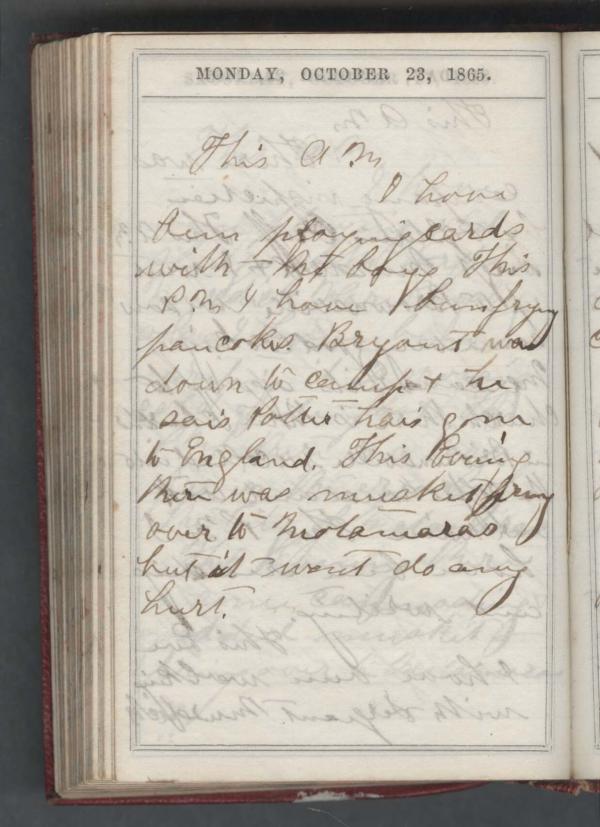 MONDAY, OCTOBER 23, 1865.
This A M
I have
bein playing cards
with the boys This
P.M I have bin frying
pancoks. Bryant was
down to camp & he
sais Potter hais gone
to England. This Evening
there was musket firing
over to Motamaras
but it wont do any
hurt.